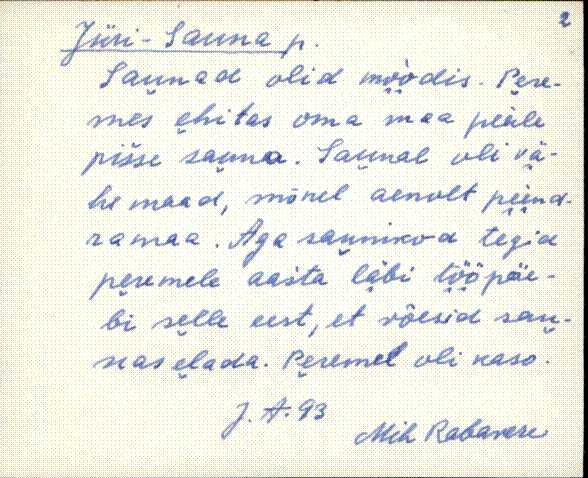 2
Jüri-Sauna p.
Saunad olid moodis. Pere-
mes ehitas oma maa peäle
pisse sauna. Saunal oli vä-
he maad, mõnel aenolt peend-
ramaa. Aga saunikod tegid
peremele aasta läbi tööpäe-
bi selle eest, et võesid sau-
nas elada. Peremel oli kaso.
J. A. 93
Mih Rabavere